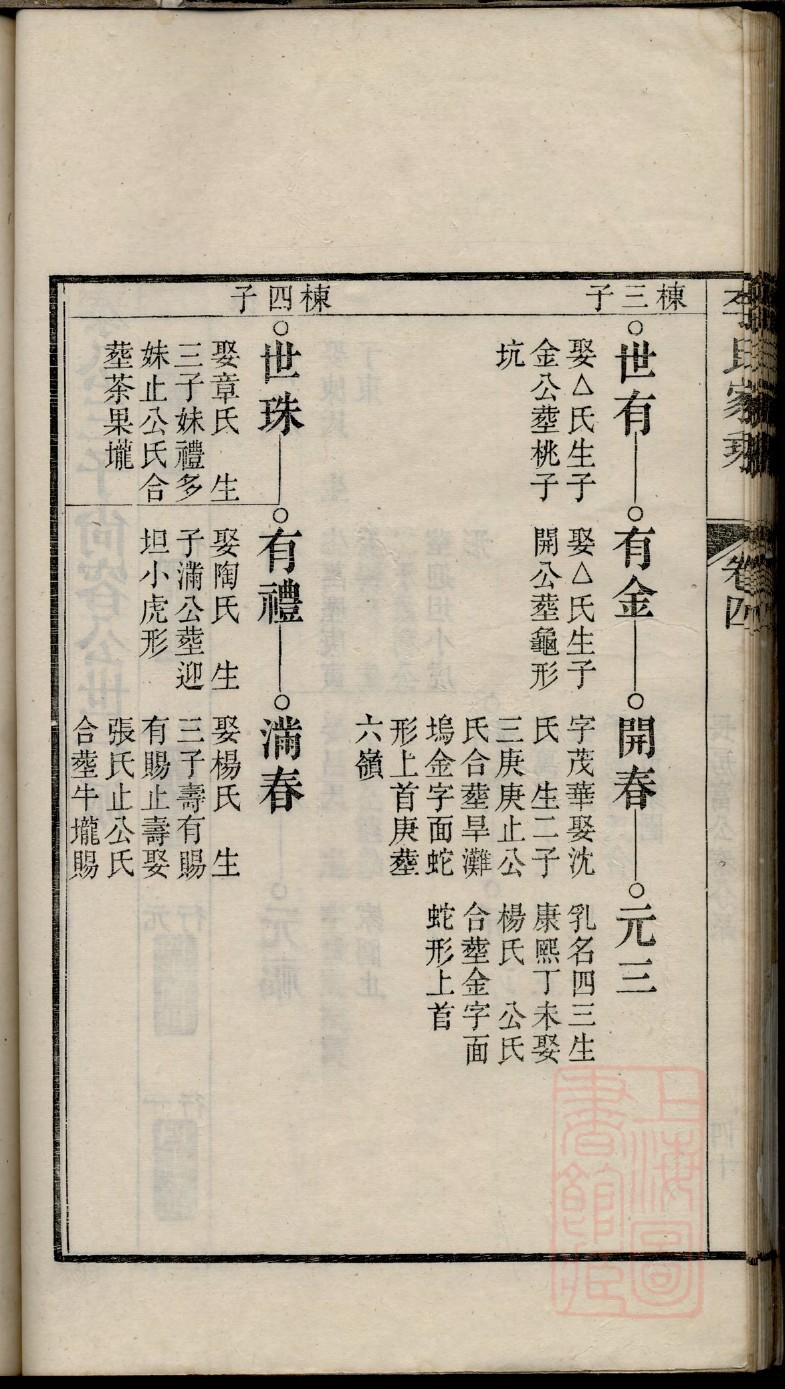 李氏家乘
卷四
棟三子
世有
娶△氏生子
金公塟桃子
坑
有金
娶△氏生子
開公塟龜形
開春
字茂華娶沈
氏　生二子
三庚庚止公
氏合塟旱灘
塢金字面蛇
形上首庚塟
六嶺
元三
乳名四三生
康熙丁未娶
楊氏　公氏
合塟金字面
蛇形上首
棟四子
世珠
娶章氏　生
三子妹禮多
妹止公氏合
塟茶果壠
有禮
娶陶氏　生
子滿公塟迎
坦小虎形
滿春
娶楊氏　生
三子壽有賜
有賜止壽娶
張氏止公氏
合塟牛壠賜
上海圖
書館藏